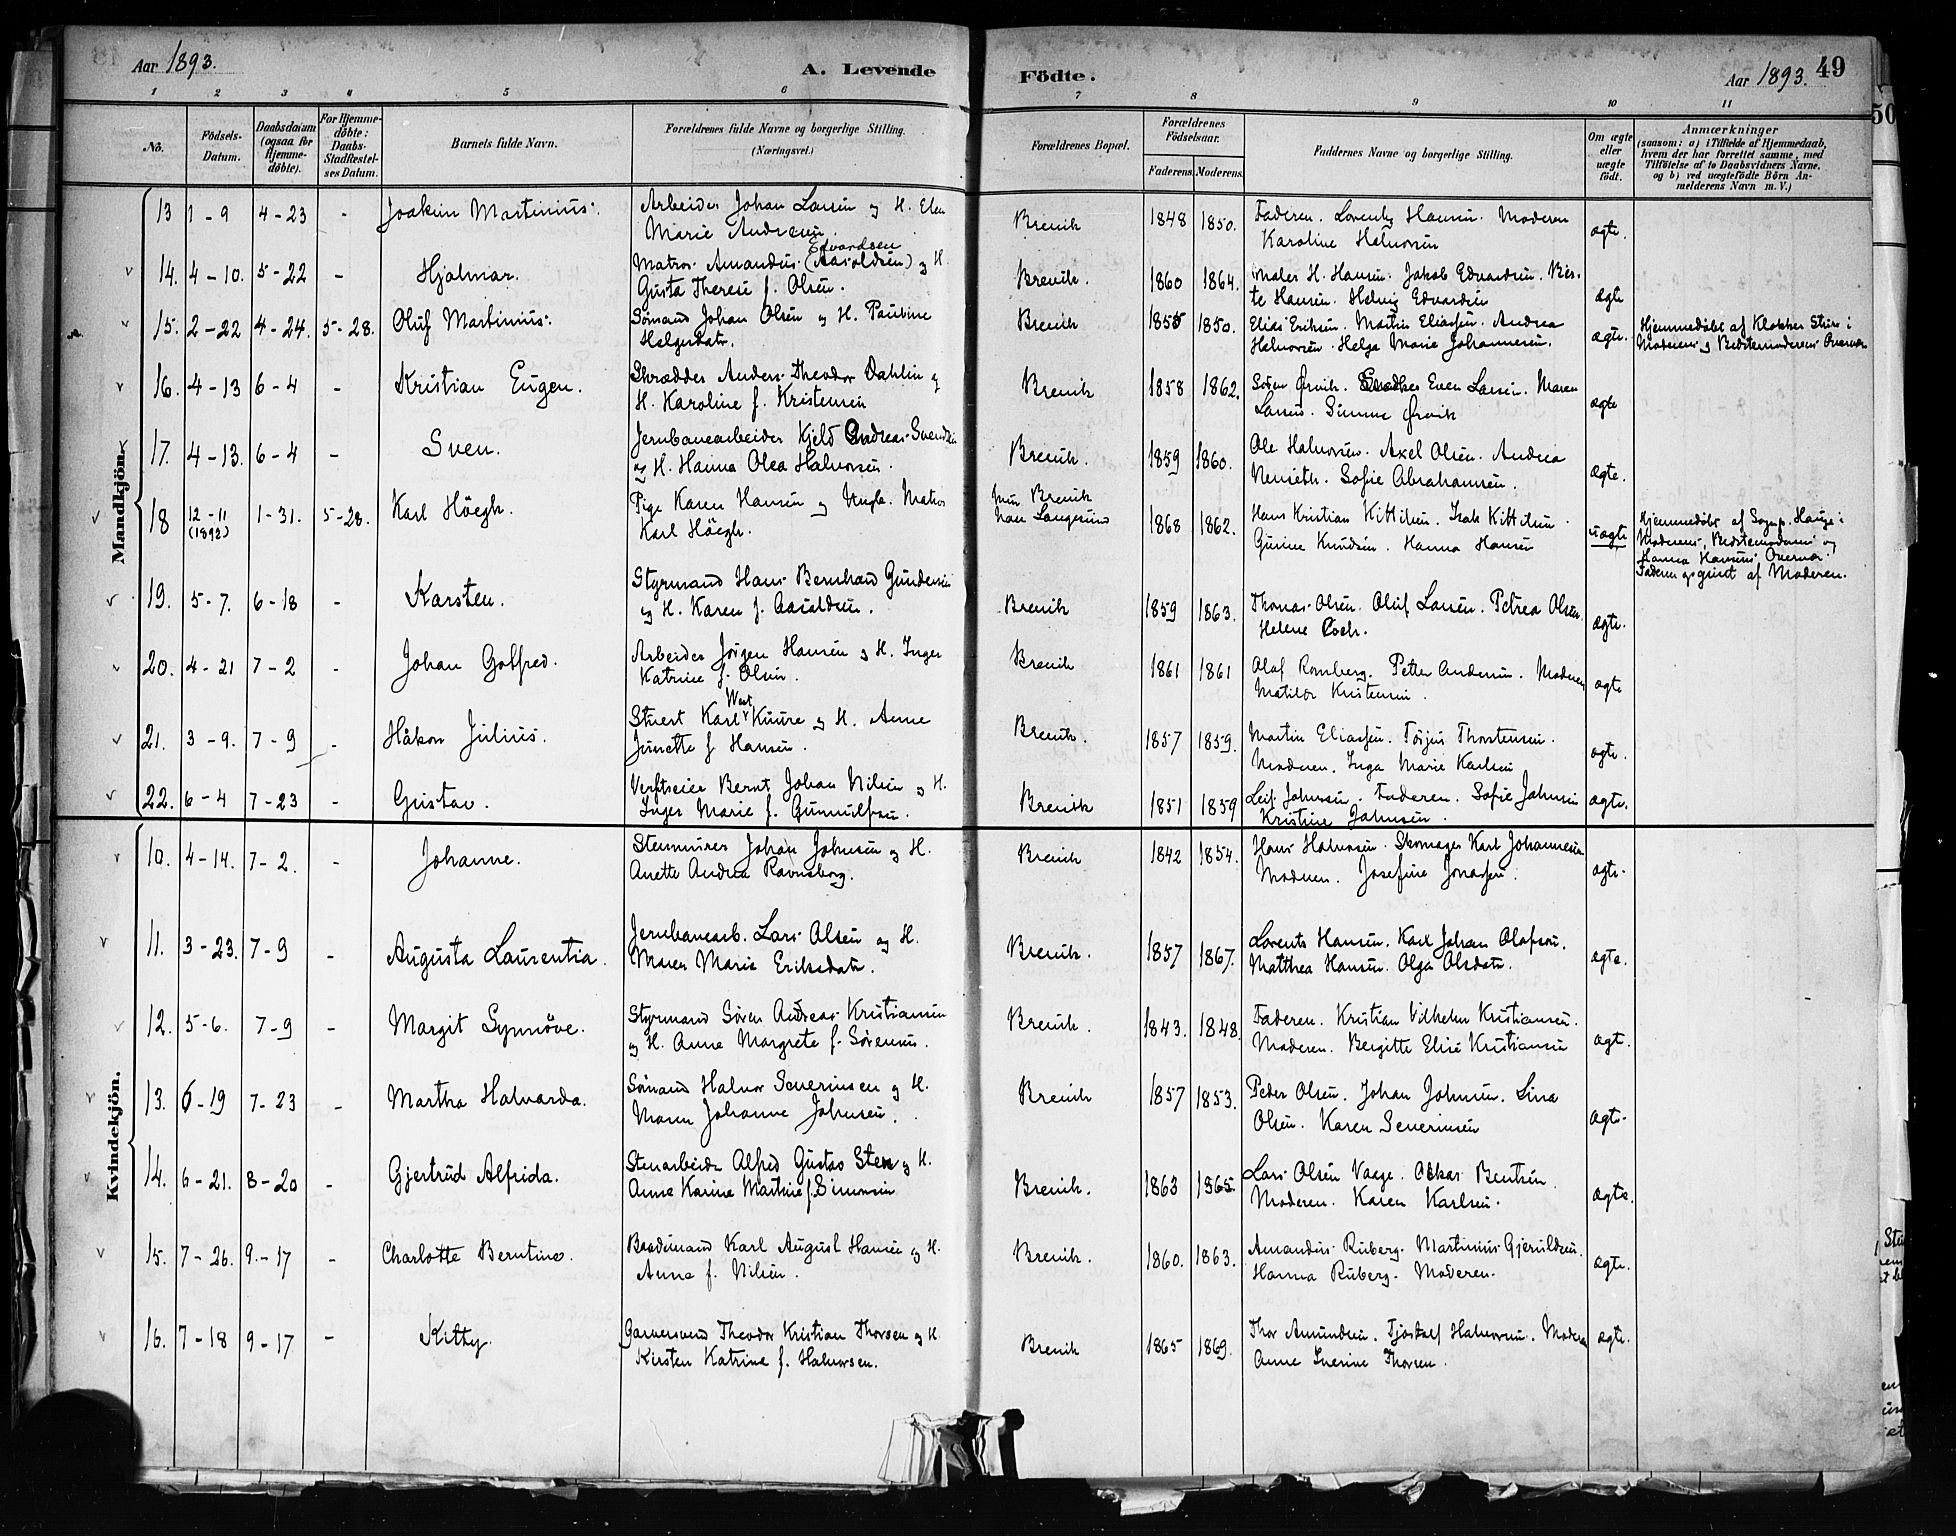 Aar 1893. A. Levende Födte. Aar 1893. 49
50
1 2 3 4 5 6 7 8 9 10 11
No. Födsels-Datum. Daabsdatum (ogsaa for Hjemmedöbte). For Hjemmedöbte: Daabs-Stadfæstelses Datum. Barnets fulde Navn. Forældrenes fulde Navne og borgerlige Stilling. (Næringsvei.) Forældrenes Bopæl. Forældrenes Födselsaar. Faderens. Moderens. Faddernes Navne og borgerlige Stilling. Om ægte eller uægte født. Anmærkninger (saasom: a) i Tilfælde af Hjemmedaab, hvem der har forrettet samme, med Tilföielse af to Daabsvidners Navne, og b) ved uægtefödte Börn Anmelderens Navn m. V.)
Mandkjön.
13 1-9 4-23 - Joakim Martinius. Arbeider Johan Larsen og H. Elen Brevik 1848 1850. Faderen. Lorentz Hansen. Moderen ægte.
Marie Andresen. Karoline Halvorsen
Edvardsen
14. 4-10. 5-22 - Hjalmar. Matros Amandus (Aasoldsen) og H. Brevik. 1860 1864. Maler H. Hansen. Jakob Edvardsen. Ber- ægte
Gusta Therese f. Olsen. te Hansen. Helvig Edvardsen
15. 2-22 4-24. 5-28. Oluf Martinius. Sømand Johan Olsen og H. Pauline Brevik 1855 1850. Elias Eriksen. Martin Eliassen. Andrea ægte. Hjemmedøbt af Klokker Stire i
Helgesdatr. Halvorsen. Helga Marie Johannesen. Moderens og Bedstemoderens Overvær
16. 4-13 6-4 - Kristian Eugen. Skrædder Anders Theodor Dahlin og Brevik 1858 1862. Søren Ørvik. Snedker Even Larsen. Maren ægte
H. Karoline f. Kristensen Larsen. Simine Ørvik
17. 4-13. 6-4 - Sven. Jernbanearbeider Kjeld Andreas Svendsen Brevik. 1859 1860. Ole Halvorsen. Axel Olsen. Andrea ægte.
og H. Hanna Olea Halvorsen. Sofie Abrahamsen.
18 12-11 (1892) 1-31. 5-28. Karl Höegh. Pige Karen Hansen og Ungk. Matros hun Brevik 1868 1862. Hans Kristian Kittilsen. Isak Kittilsen uægte Hjemmedøbt af Sogep. Hauge i
Karl Höegh. han Langesund Gurine Knudsen. Hanna Hansen Moderens, Bedstemoderens og
Hanna Hansens Overvær.
Faderen opgivet af Moderen.
19. 5-7. 6-18 - Karsten. Styrmand Hans Bernhard Gundersen Brevik 1859 1863. Thomas Olsen. Oluf Larsen. Petrea Olsen. ægte.
og H. Karen f. Aasoldsen. Helene Coch.
20. 4-21 7-2 - Johan Gotfred. Arbeider Jörgen Hansen og H. Inger Brevik 1861 1861 Olaf Romberg. Petter Andersen. Moderen ægte
Katrine f. Olsen. Matilde Kristensen.
West
21. 3-9. 7-9 - Håkon Julius. Stuert Karl Knure og H. Anne Brevik. 1857 1859. Martin Eliassen. Torjus Thorstensen. ægte.
Junette f. Hansen. Moderen. Inga Marie Karlsen
22. 6-4 7-23 - Gustav. Verftseier Bernt Johan Nilsen og H. Brevik 1851 1859 Leif Johnsen. Faderen. Sofie Johnsen ægte.
Inger Marie f. Gunnulfsen. Kristine Johnsen.
Kvindekjön.
10. 4-14. 7-2. - Johanne. Stenmurer Johan Johnsen og H. Brevik 1842 1854. Hans Halvorsen. Skomager Karl Johannesen ægte.
Anette Andrea Ravnsborg. Moderen. Josefine Jonassen.
11. 3-23. 7-9 - Augusta Laurentia. Jernbanearb. Lars Olsen og H. Brevik. 1857 1867. Lorents Hansen. Karl Johan Olafsen. ægte.
Maren Marie Eriksdatr. Matthea Hansen. Olga Olsdatr.
12. 5-6. 7-9 - Margit Synnöve. Styrmand Sören Andreas Kristiansen Brevik. 1843. 1848. Faderen. Kristian Vilhelm Kristiansen. ægt.
og H. Anne Margrete f. Sørensen. Moderen. Bergitte Elise Kristiansen
13. 6-19 7-23 - Martha Halvarda. Sømand Halvor Severinsen og H. Brevik 1857 1853. Peder Olsen. Johan Johnsen. Lina ægte.
Maren Johanne Johnsen. Olsen. Karen Severinsen
14. 6-21. 8-20 - Gjertrud Alfrida. Stenarbeider Alfred Gustav Sten og H. Brevik. 1863 1865. Lars Olsen Vaage. Oskar Bentsen. ægte.
Anne Karine Martine f. Simonsen Moderen. Karen Karlsen.
15. 7-26. 9-17 - Charlotte Berntine. Baadsmand Karl August Hansen og H. Brevik. 1860. 1863. Amandus Ruberg. Martinius Gjeruldsen. ægte.
Anna f. Nilsen. Hanna Ruberg. Moderen.
16. 7-18 9-17 - Kitty. Garversvend Theodor Kristian Thorsen og H. Brevik 1865 1869. Thor Amundsen. Tjostolf Halvorsen. Moderen ægte.
Kirsten Katrine f. Halvorsen. Anne Severine Thorsen.